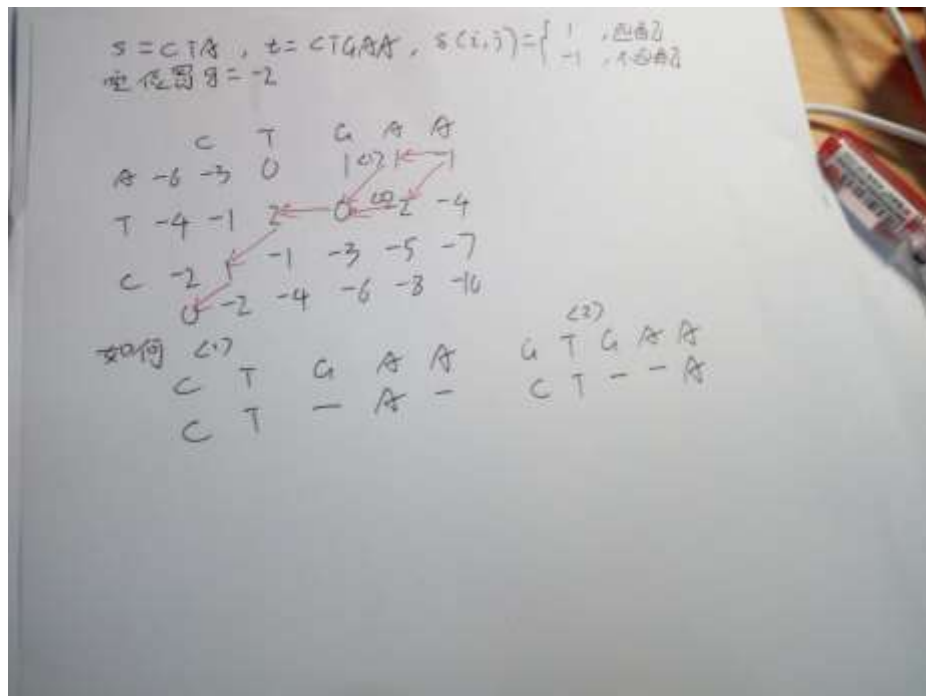 s = CTA , t = CTGAA , s(i,j) = { 1 , 匹配
-1 , 不匹配
空位罚 g = -2
C T G A A
A -6 -3 0 1 (1) 1 1
T -4 -1 2 0 (2) -2 -4
C -2 1 -1 -3 -5 -7
0 -2 -4 -6 -8 -10
如何 (1) (2)
C T G A A G T G A A
C T — A — C T — — A